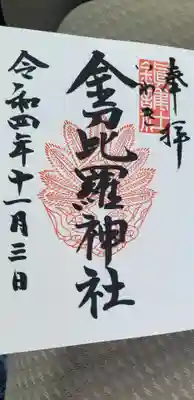 奉拝
いわき
金刀比羅神社
令和四年十一月三日